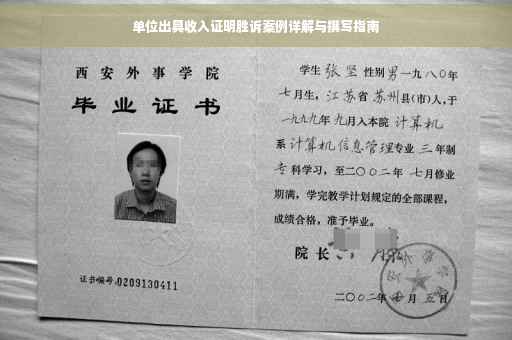 单位出具收入证明胜诉案例详解与撰写指南
西安外事学院
毕业证书
证书编号:0209130411
学生 张坚 性别 男 一九八〇年
七月生, 江苏省 苏州县(市)人,于
一九九九年 九月入本院 计算机
系 计算机信息管理专业 三 年制
专科学习,至二〇〇二年 七月修业
期满,学完教学计划规定的全部课程,
成绩合格,准予毕业。
院长
二〇〇二年 月 五日